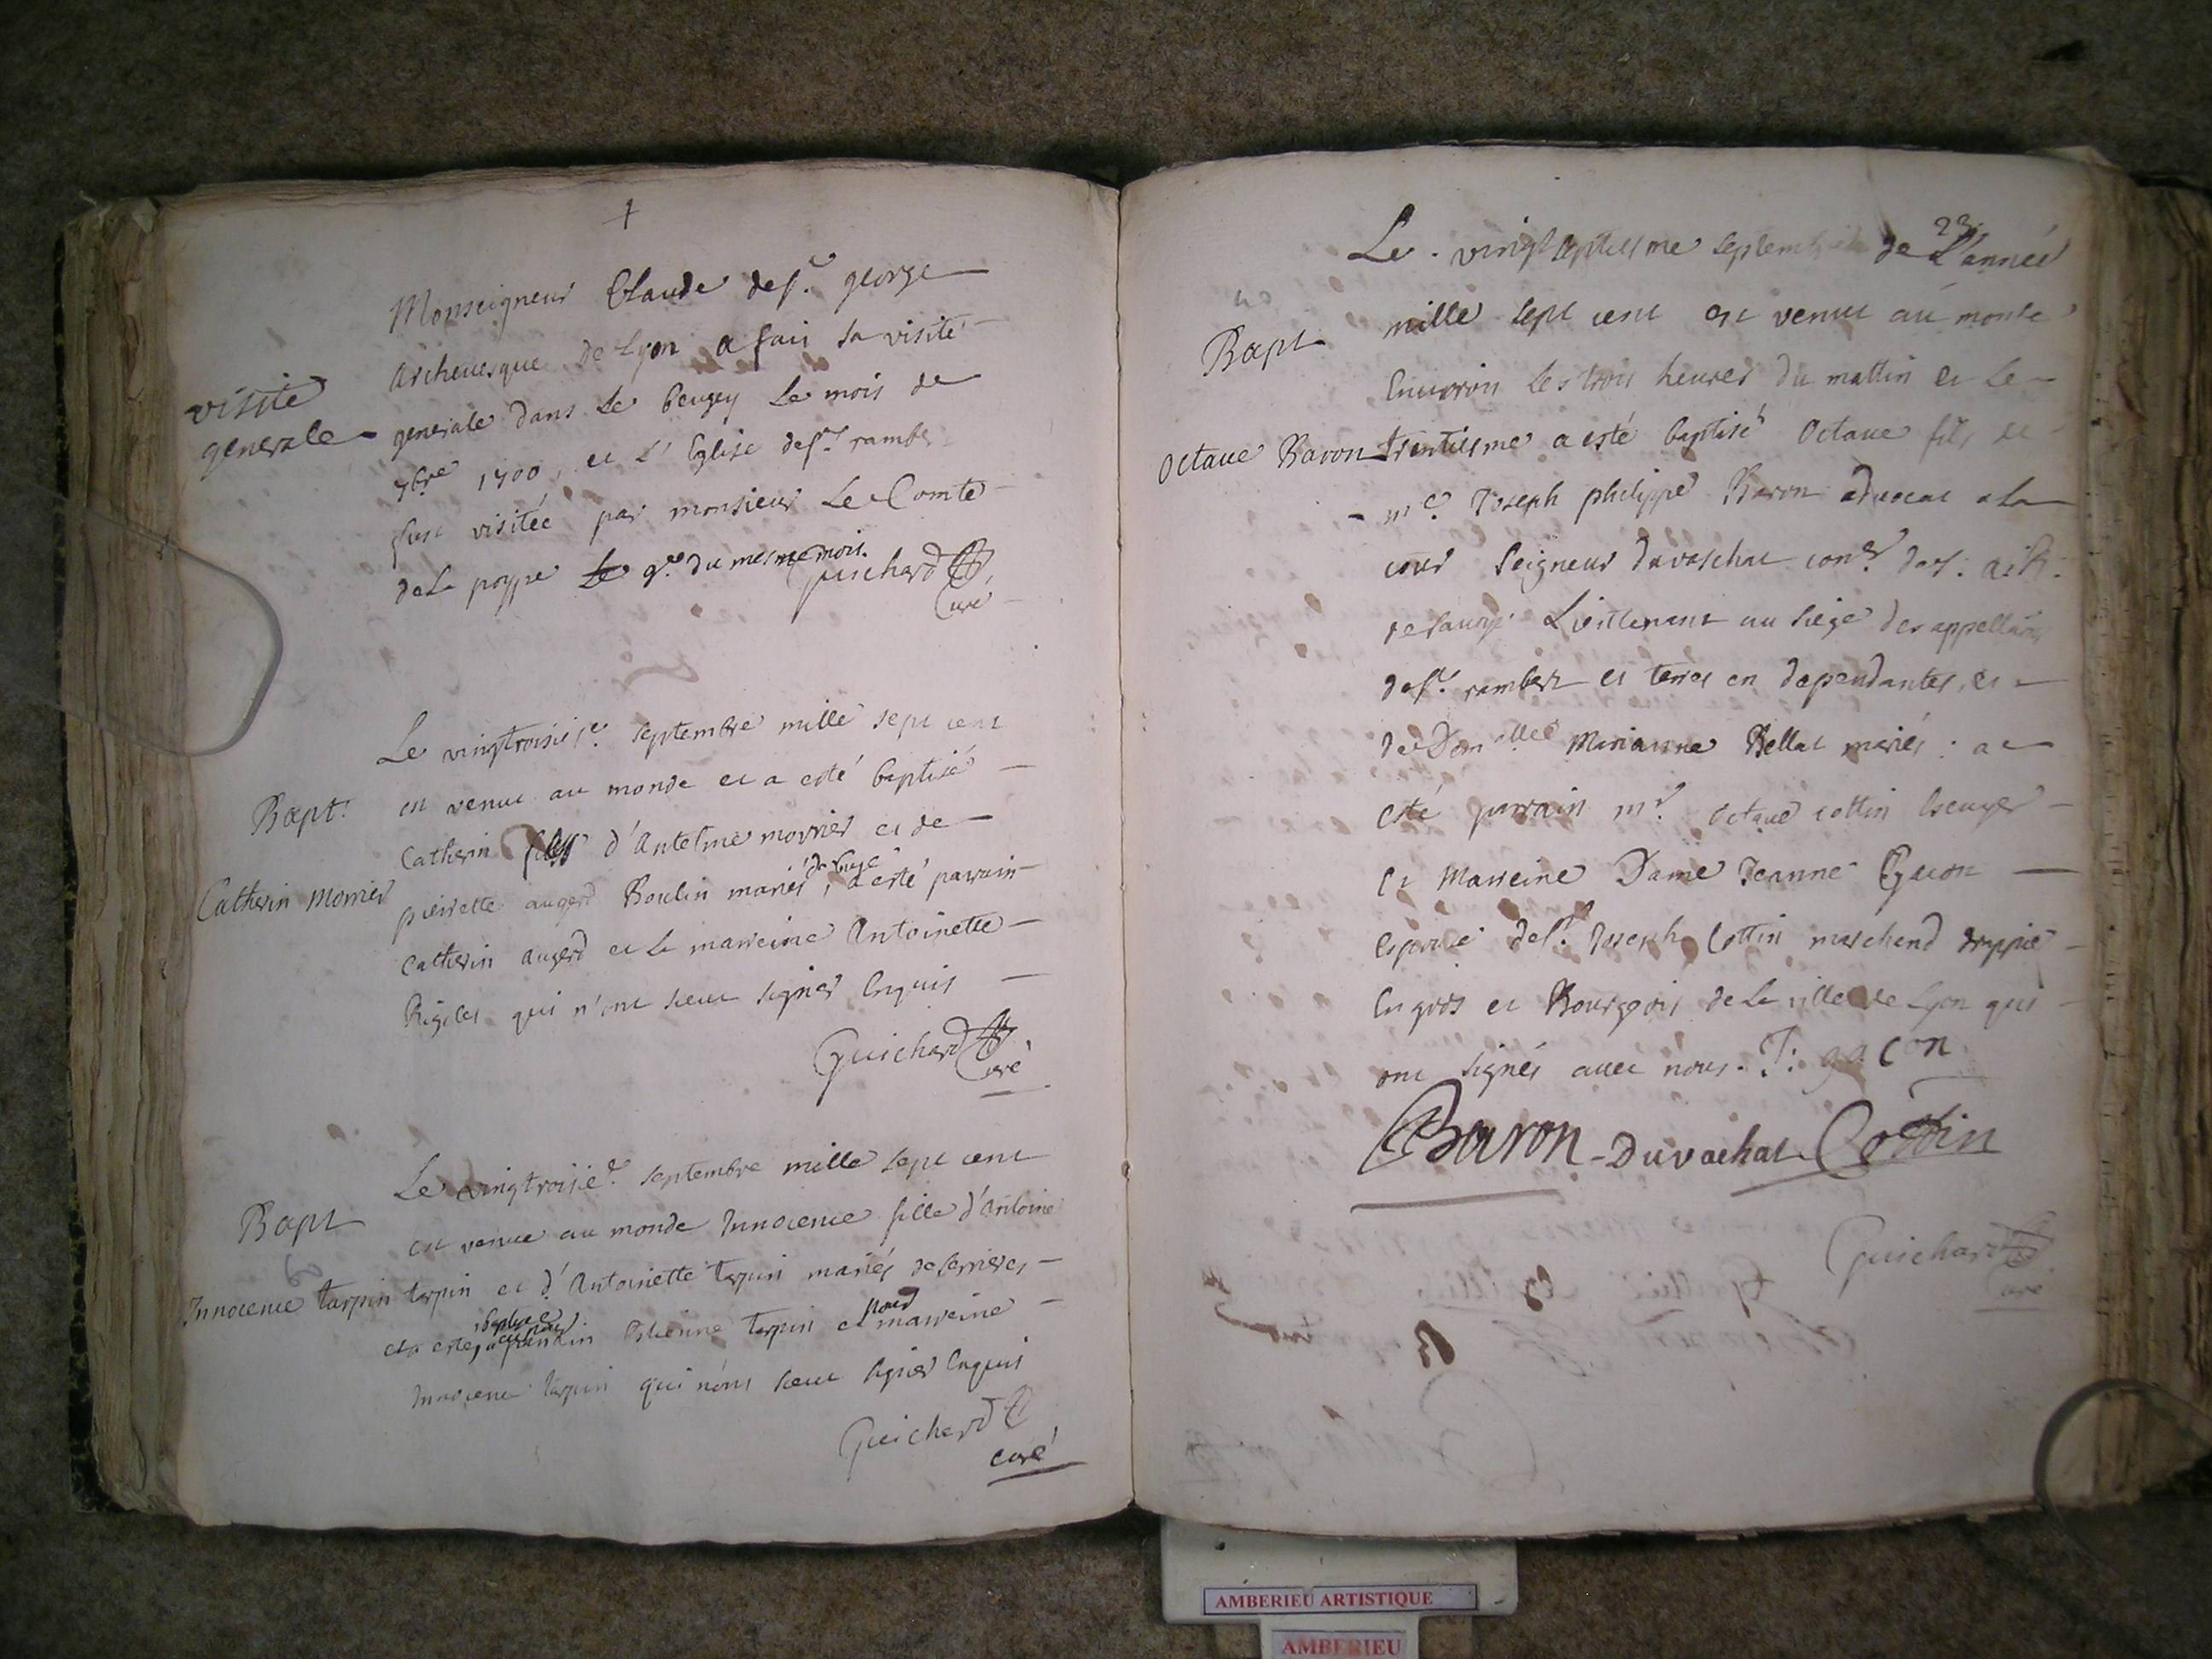 +
Monseigneur Claude de st. george
visite
generale
Archeuesque de Lyon a fait sa visite
generale dans Le beugey Le mois de
7bre 1700, et L'Eglise de st. rambt
fust visitée par monsieur Le Comte
de La poype Le 9e. du mesme mois.
Guichard
Curé
Le vingtroisies.e septembre mille sept cent
Bapt.
est venu au monde et a esté baptisé
Catherin fils d'Antelme movrier et de
Catherin Morrier
pierrette augerd Boulin mariés, a esté parrain
Catherin augerd et la marreine Antoinette
qui n'ont sceu signer Enquis
Guichard
Curé
Le vingtroisie.e septembre mille sept cent
Bapt
est venue au monde Innocence fille d'Antoine
Innocence tarpin
tarpin et d'Antoinette tarpin mariés de serrieres
baptisée
et a esté, parrain Estienne tarpin et pour marreine
Innocence tarpin qui n'ont sceu signer Enquis
Guichard
curé
23
Le vingt septiesme septembre de L'année
Bapt
mille sept cent est venu au monde
Enuiron Les trois heures du mattin et Le
Octaue Baron
trentiesme a esté baptisé Octaue fils de
me. Joseph philippe Baron aduocat a La
cour Seigneur duvaschat coner. de s. a. R.
de sauoye Lieutenant au siege des appellations
de st. rambert et terres en dependantes, et
de Domelle Marianne Bellat mariés : a
esté parrain mr. Octaue cottin Escuyer
Et Marreine Dame Jeanne Gacon
Espouse de sr. Joseph Cottin marchend drappié
En gros et Bourgois de La ville de Lyon qui
ont signés auec nous. J: gacon
Baron - Duvachat Cottin
Guichard
Curé
AMBERIEU ARTISTIQUE
AMBERIEU